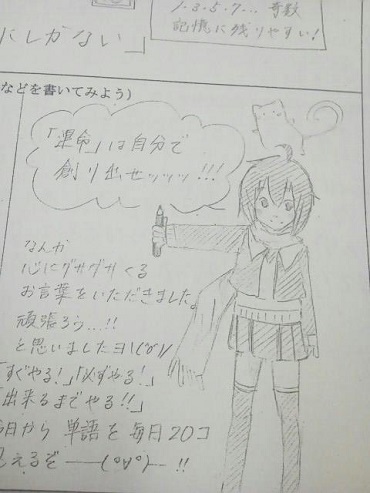 にしかない」
1.3.5.7... 奇数
記憶に残りやすい!
などを書いてみよう)
「運命」は自分で
創り出せッッッ!!!
なんか
心にグサグサくる
お言葉をいただきました。
頑張ろう...!!
と思いましたヨ\(°∀°)/
「すぐやる!」「必ずやる!」
「出来るまでやる!!」
今日から 単語を毎日20コ
覚えるぞ――(°∀°)――!!